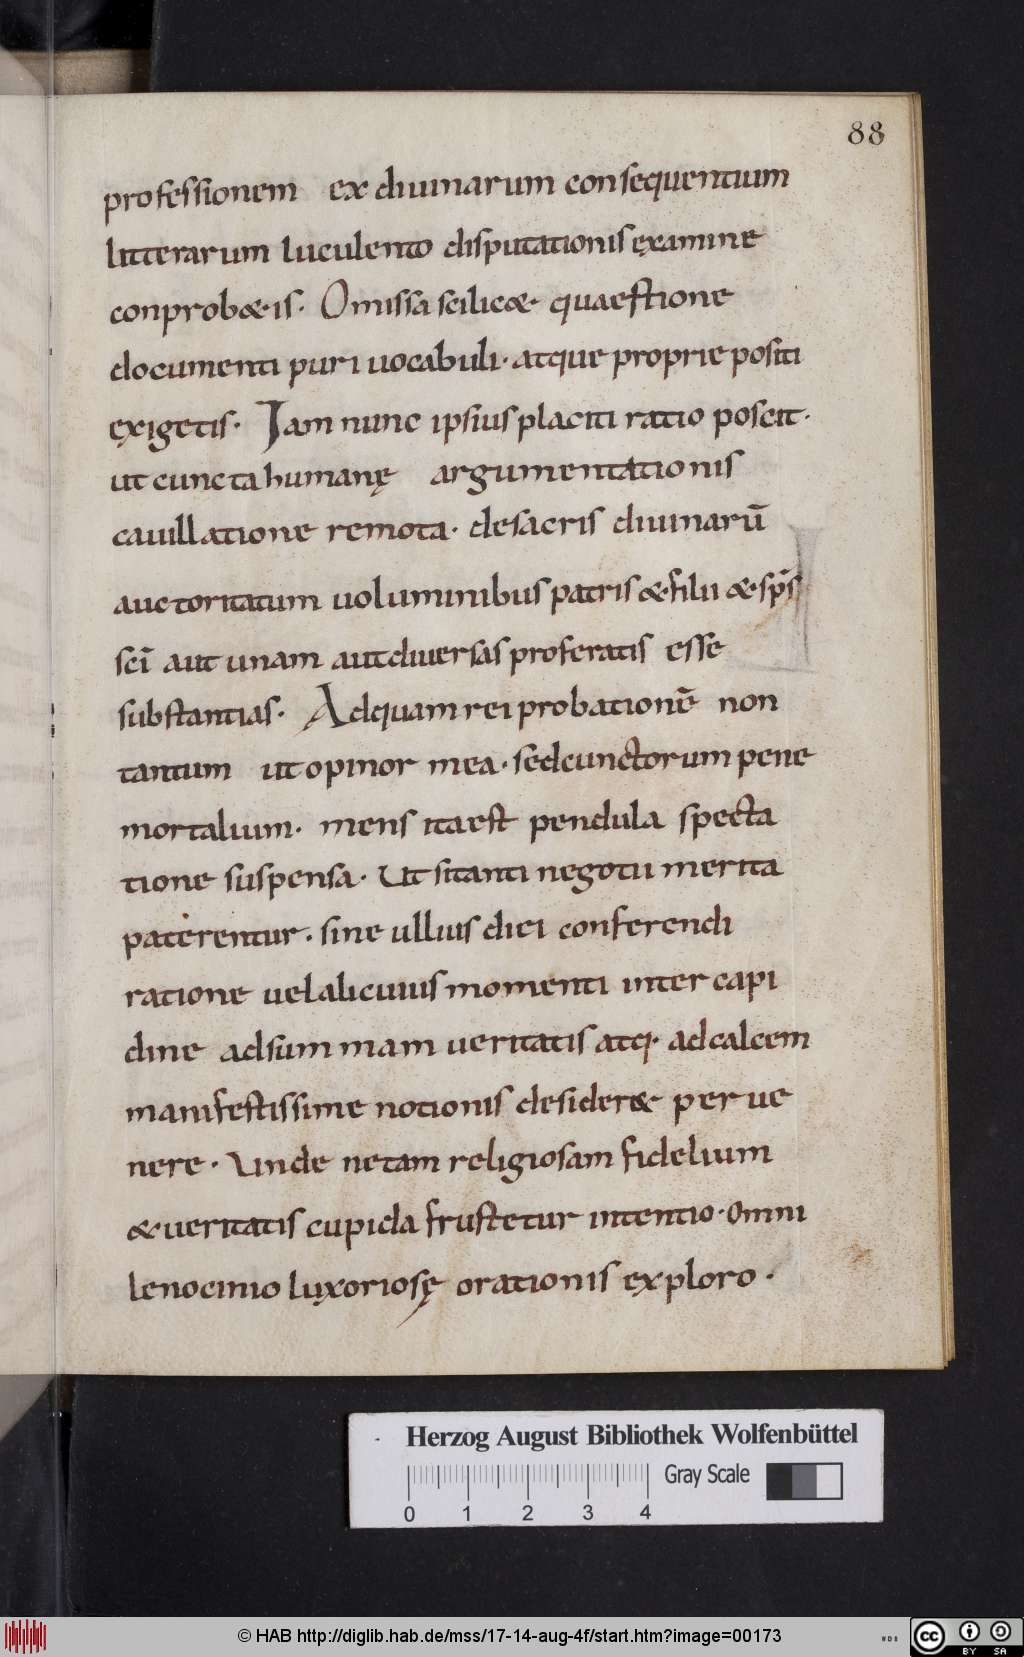 88
professionem ex diuinarum consequentium
litterarum luculento disputationis ęxamine
conprob&is. Omissa scilic& quaestione
documenti puri uocabuli. atque proprie positi
exigetis. Iam nunc ipsius placiti ratio poscit.
ut cuncta humanę argumentationis
cauillatione remota. de sacris diuinarū
auctoritatum uoluminibus patris & filii & sp̄s
sc̄i aut unam aut diuersas proferatis esse
substantias. Ad quam rei probationē non
tantum ut opinor mea. sed cunctorum pene
mortalium. mens ita est pendula specta
tione suspensa. Ut si tanti negotii merita
paterentur. sine ullius diei conferendi
ratione uel alicuius momenti inter capi
dine ad summam ueritatis atq. ad calcem
manifestissime notionis desider& per ue
nere. Unde ne tam religiosam fidelium
& ueritatis cupida frustetur intentio. omni
lenocinio luxoriosę orationis ęxploro.
Herzog August Bibliothek Wolfenbüttel
Gray Scale
0 1 2 3 4
© HAB http://diglib.hab.de/mss/17-14-aug-4f/start.htm?image=00173
WDB
cc BY SA